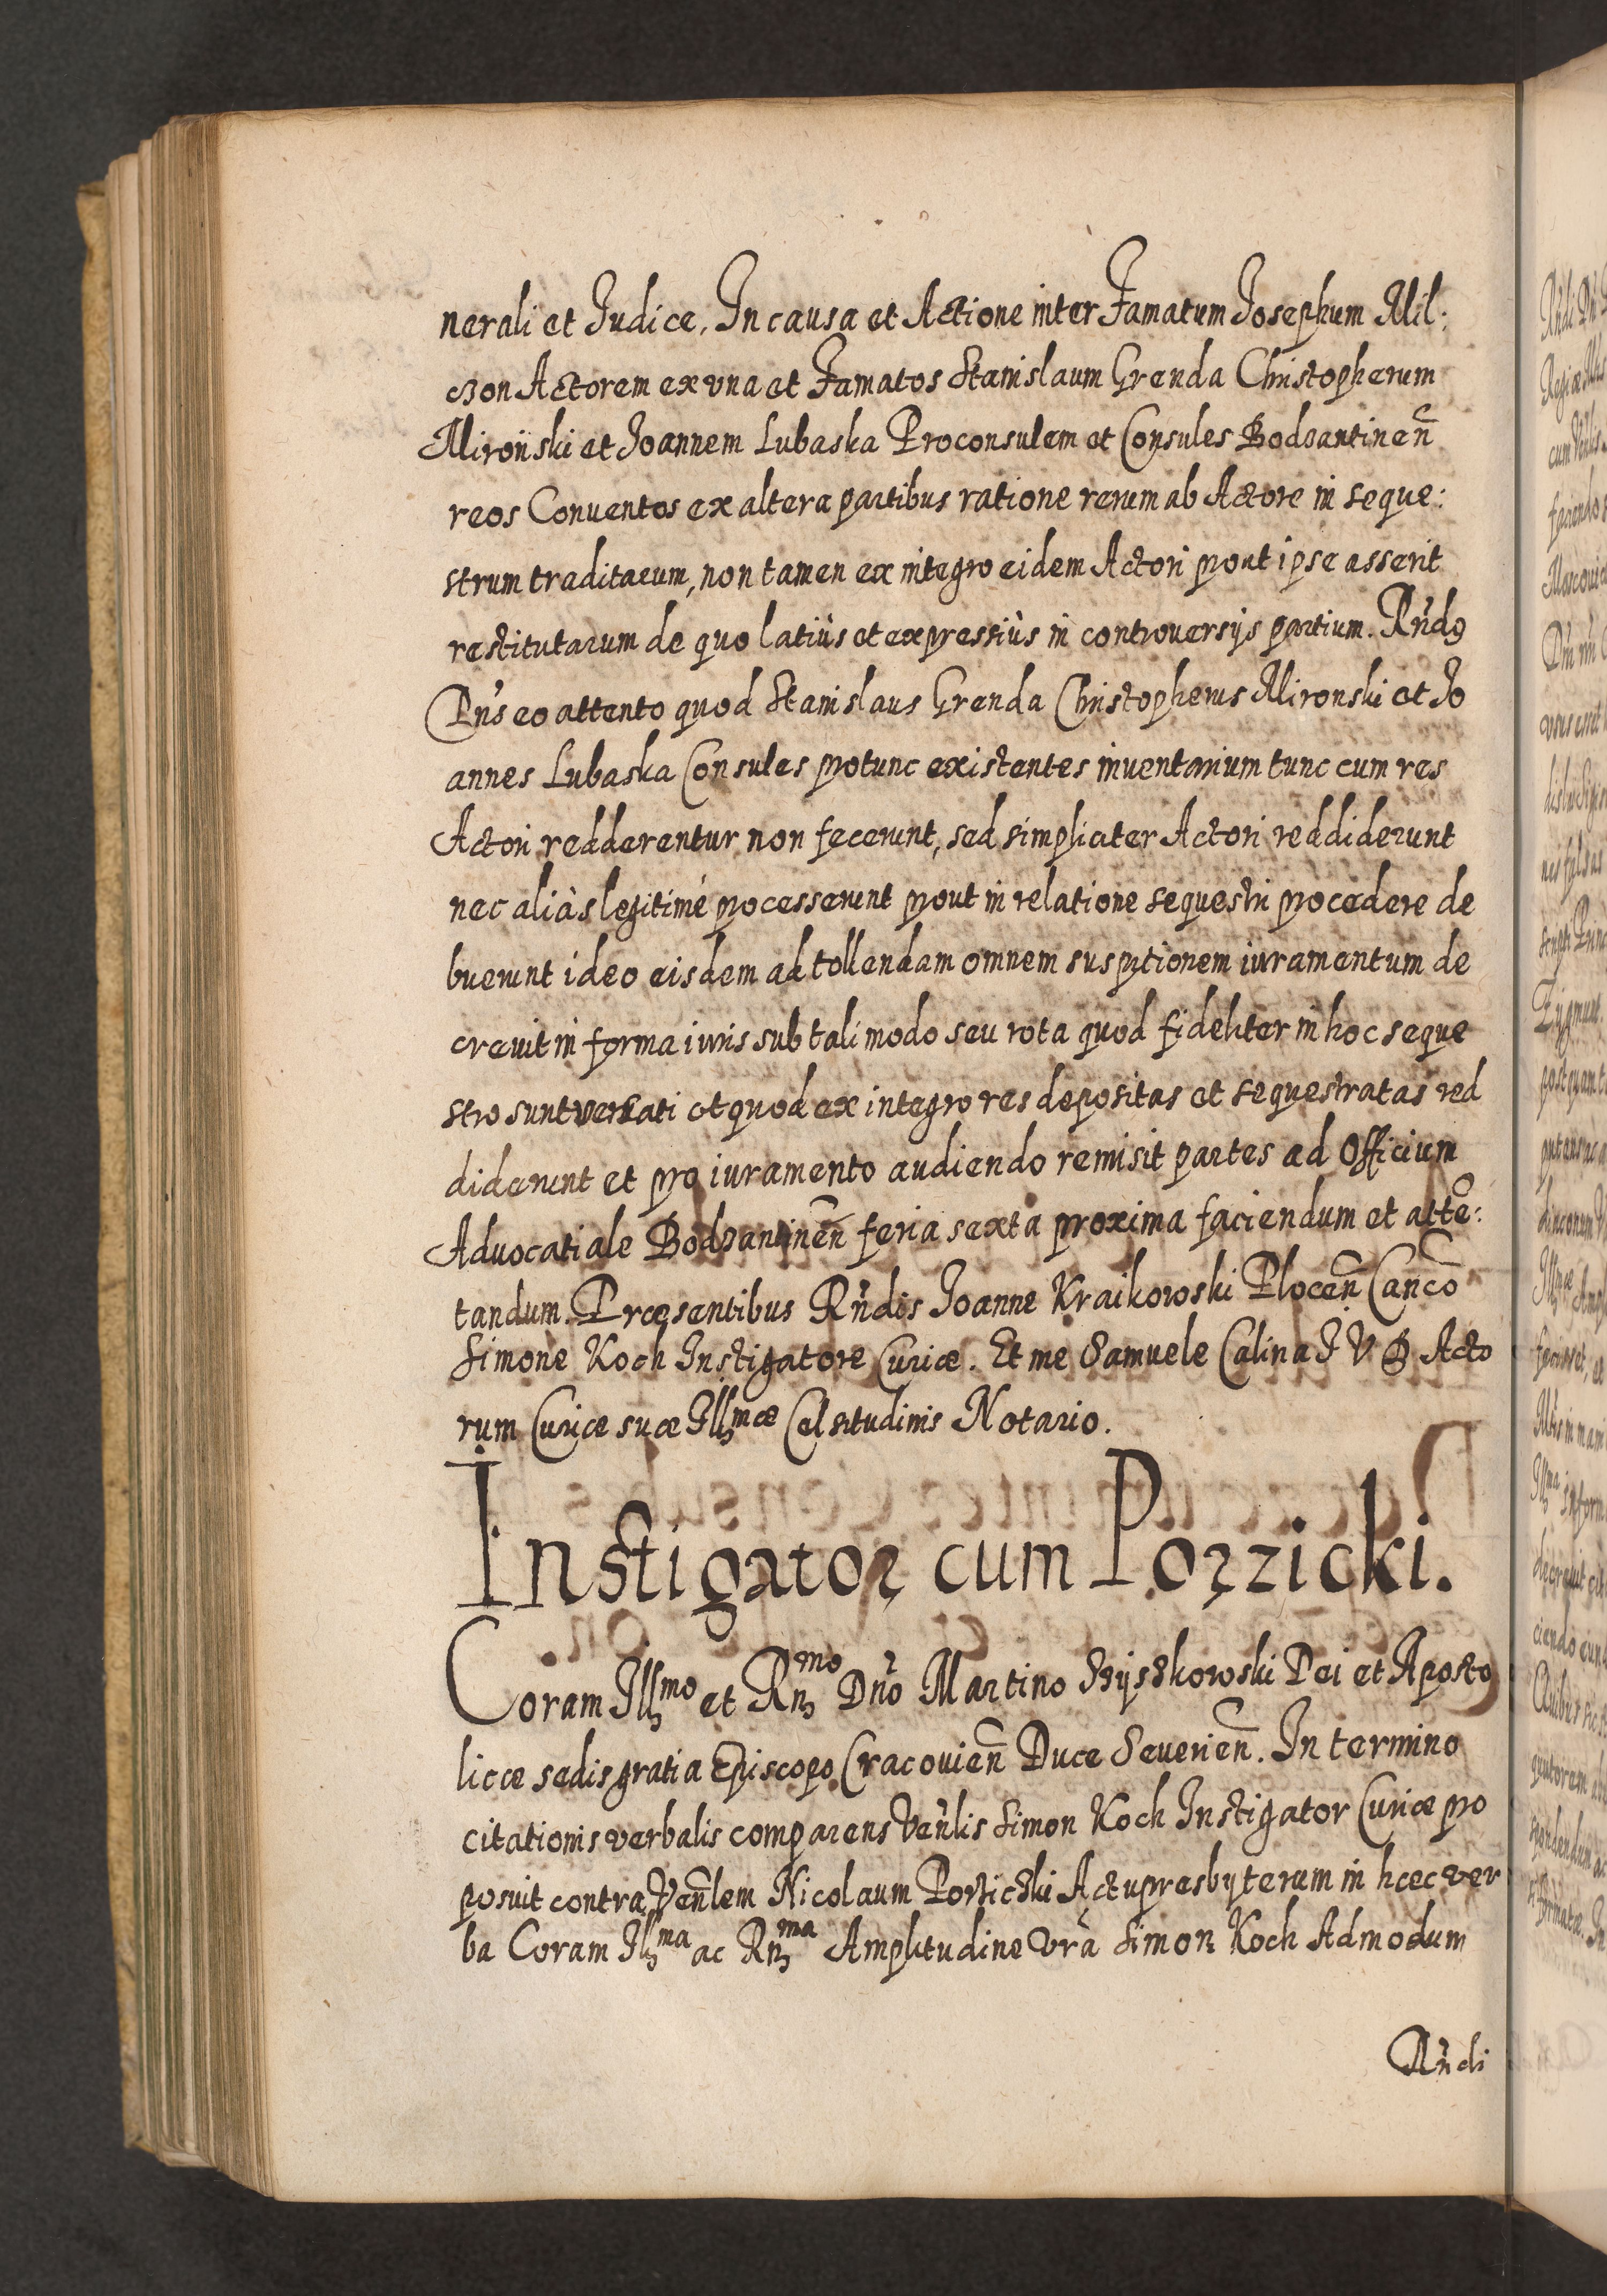 nerali et Judice, In causa et Actione inter Famatum Josephum Mil:
czon Actorem ex vna et Famatos Stanislaum Grenda Christopherum
Mironski et Joannem Lubaska Proconsulem et Consules Bodzantinen̄
reos Conuentos ex altera partibus ratione rerum ab Actore in seque:
strum traditarum, non tamen ex integro eidem Actori prout ipse asserit
restitutarum de quo latiùs et expressiùs in controuersijs partium. Rn̄dꝯ
Dn̄s eo attento quod Stanislaus Grenda Christopherus Mironski et Jo
annes Lubaska Consules protunc existentes inuentarium tunc cum res
Actori redderentur non fecerunt, sed simpliciter Actori reddiderunt
nec aliàs legitimé processerunt prout in relatione sequestri procedere de
buerunt ideo eisdem ad tollendam omnem susptionem iuramentum de
creuit in forma iuris sub tali modo seu rota quod fideliter in hoc seque
stro sunt versati et quod ex integro res depositas et sequestratas red
diderunt et pro iuramento audiendo remisit partes ad Officium
Aduocatiale Bodzantinen̄ feria sexta proxima faciendum et attē:
tandum. Præsentibus Rn̄dis Joanne Kraikowski Plocen̄ Canco̅
Simone Koch Instigatore Curiæ. Et me Samuele Calina J V D Acto
rum Curiæ suæ Illmæ Celsitudinis Notario.
Instigator cum Porzicki.
Coram Illmo et Rnmo Dn̄o Martino Szyszkowski Dei et Aposto
licæ sedis gratia Episcopo Cracouien̄ Duce Seuerien̄. In termino
citationis verbalis comparens Ven̄lis Simon Koch Instigator Curiæ pro
posuit contra Ven̄lem Nicolaum Porzicki Actu presbyterum in hæc ver
ba Coram Illma ac Rnma Amplitudine Vrā Simon Koch Admodum
Rn̄di